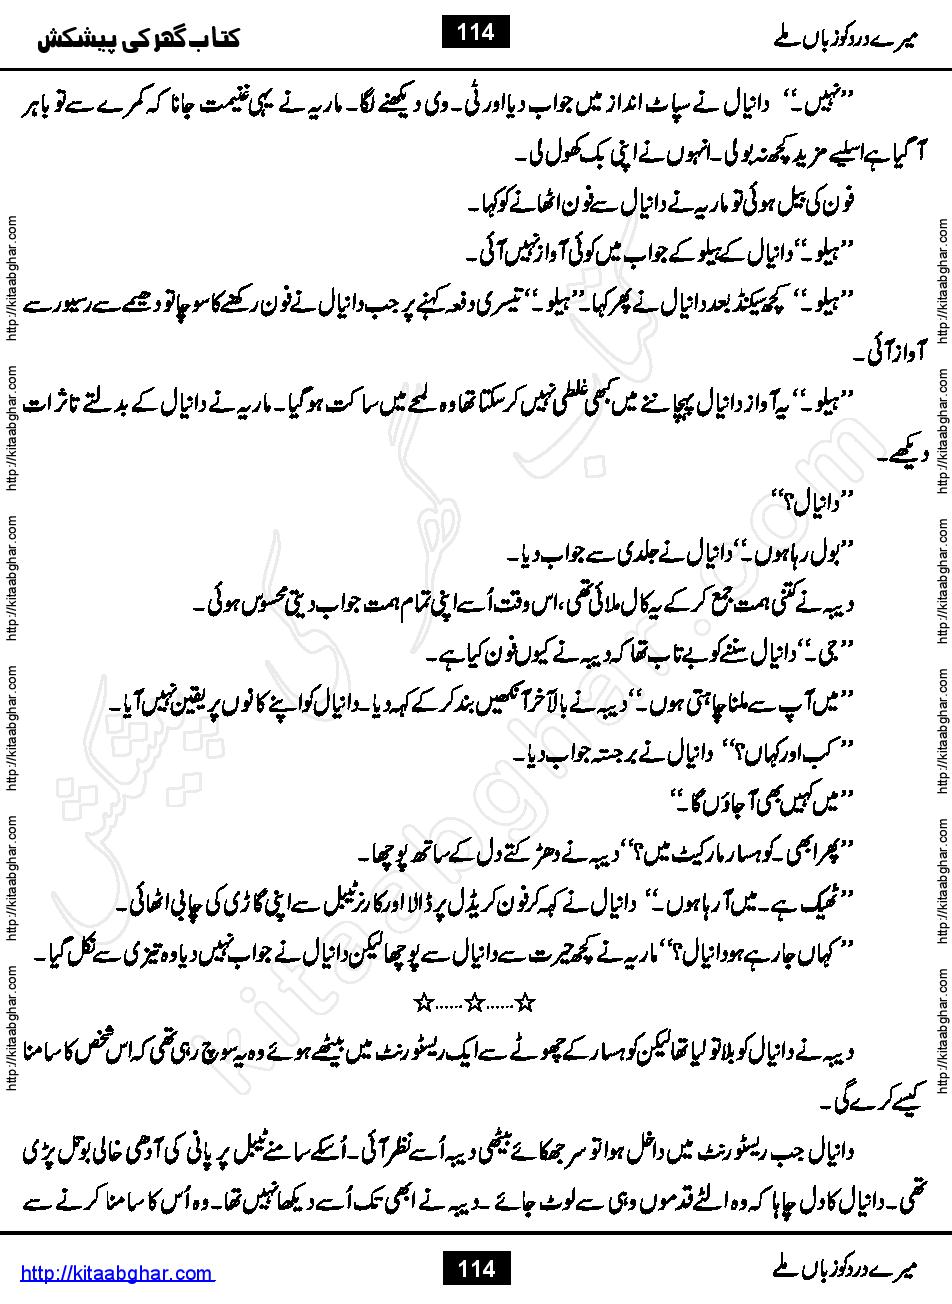 میرے درد کو زباں ملے
114
کتاب گھر کی پیشکش
’’نہیں۔‘‘ دانیال نے سپاٹ انداز میں جواب دیا اور ٹی۔وی دیکھنے لگا۔ ماریہ نے یہی غنیمت جانا کہ کمرے سے تو باہر
آگیا ہے اسلیے مزید کچھ نہ بولی۔ انہوں نے اپنی بک کھول لی۔
فون کی بیل ہوئی تو ماریہ نے دانیال سے فون اٹھانے کو کہا۔
’’ہیلو۔‘‘ دانیال کے ہیلو کے جواب میں کوئی آواز نہیں آئی۔
’’ہیلو۔‘‘ کچھ سیکنڈ بعد دانیال نے پھر کہا۔ ’’ہیلو۔‘‘ تیسری دفعہ کہنے پر جب دانیال نے فون رکھنے کا سوچا تو دھیمے سے رسیور سے
آواز آئی۔
’’ہیلو۔‘‘ یہ آواز دانیال پہچاننے میں کبھی غلطی نہیں کر سکتا تھا وہ لمحے میں ساکت ہوگیا۔ ماریہ نے دانیال کے بدلتے تاثرات
دیکھے۔
’’دانیال؟‘‘
’’بول رہا ہوں۔‘‘ دانیال نے جلدی سے جواب دیا۔
دیبہ نے کتنی ہمت جمع کر کے یہ کال ملائی تھی، اس وقت اُسے اپنی تمام ہمت جواب دیتی محسوس ہوئی۔
’’جی۔‘‘ دانیال سننے کو بے تاب تھا کہ دیبہ نے کیوں فون کیا ہے۔
’’میں آپ سے ملنا چاہتی ہوں۔‘‘ دیبہ نے بالآخر آنکھیں بند کر کے کہہ دیا۔ دانیال کو اپنے کانوں پر یقین نہیں آیا۔
’’کب اور کہاں؟‘‘ دانیال نے برجستہ جواب دیا۔
’’میں کہیں بھی آ جاؤں گا۔‘‘
’’پھر ابھی۔ کوہسار مارکیٹ میں؟‘‘ دیبہ نے دھڑکتے دل کے ساتھ پوچھا۔
’’ٹھیک ہے۔ میں آ رہا ہوں۔‘‘ دانیال نے کہہ کر فون کریڈل پر ڈالا اور کارنر ٹیبل سے اپنی گاڑی کی چابی اٹھائی۔
’’کہاں جا رہے ہو دانیال؟‘‘ ماریہ نے کچھ حیرت سے دانیال سے پوچھا لیکن دانیال نے جواب نہیں دیا وہ تیزی سے نکل گیا۔
☆......☆......☆
دیبہ نے دانیال کو بلا تو لیا تھا لیکن کوہسار کے چھوٹے سے ایک ریسٹورنٹ میں بیٹھے ہوئے وہ یہ سوچ رہی تھی کہ اس شخص کا سامنا
کیسے کرے گی۔
دانیال جب ریسٹورنٹ میں داخل ہوا تو سر جھکائے بیٹھی دیبہ اُسے نظر آئی۔ اُسکے سامنے ٹیبل پر پانی کی آدھی خالی بوتل پڑی
تھی۔ دانیال کا دل چاہا کہ وہ الٹے قدموں وہی سے لوٹ جائے۔ دیبہ نے ابھی تک اُسے دیکھا نہیں تھا۔ وہ اُس کا سامنا کرنے سے
میرے درد کو زباں ملے
114
http://kitaabghar.com
http://kitaabghar.com
http://kitaabghar.com
http://kitaabghar.com
http://kitaabghar.com
http://kitaabghar.com
http://kitaabghar.com
http://kitaabghar.com
http://kitaabghar.com
http://kitaabghar.com
http://kitaabghar.com
http://kitaabghar.com
http://kitaabghar.com
کتاب گھر کی پیشکش
kitaabghar.com